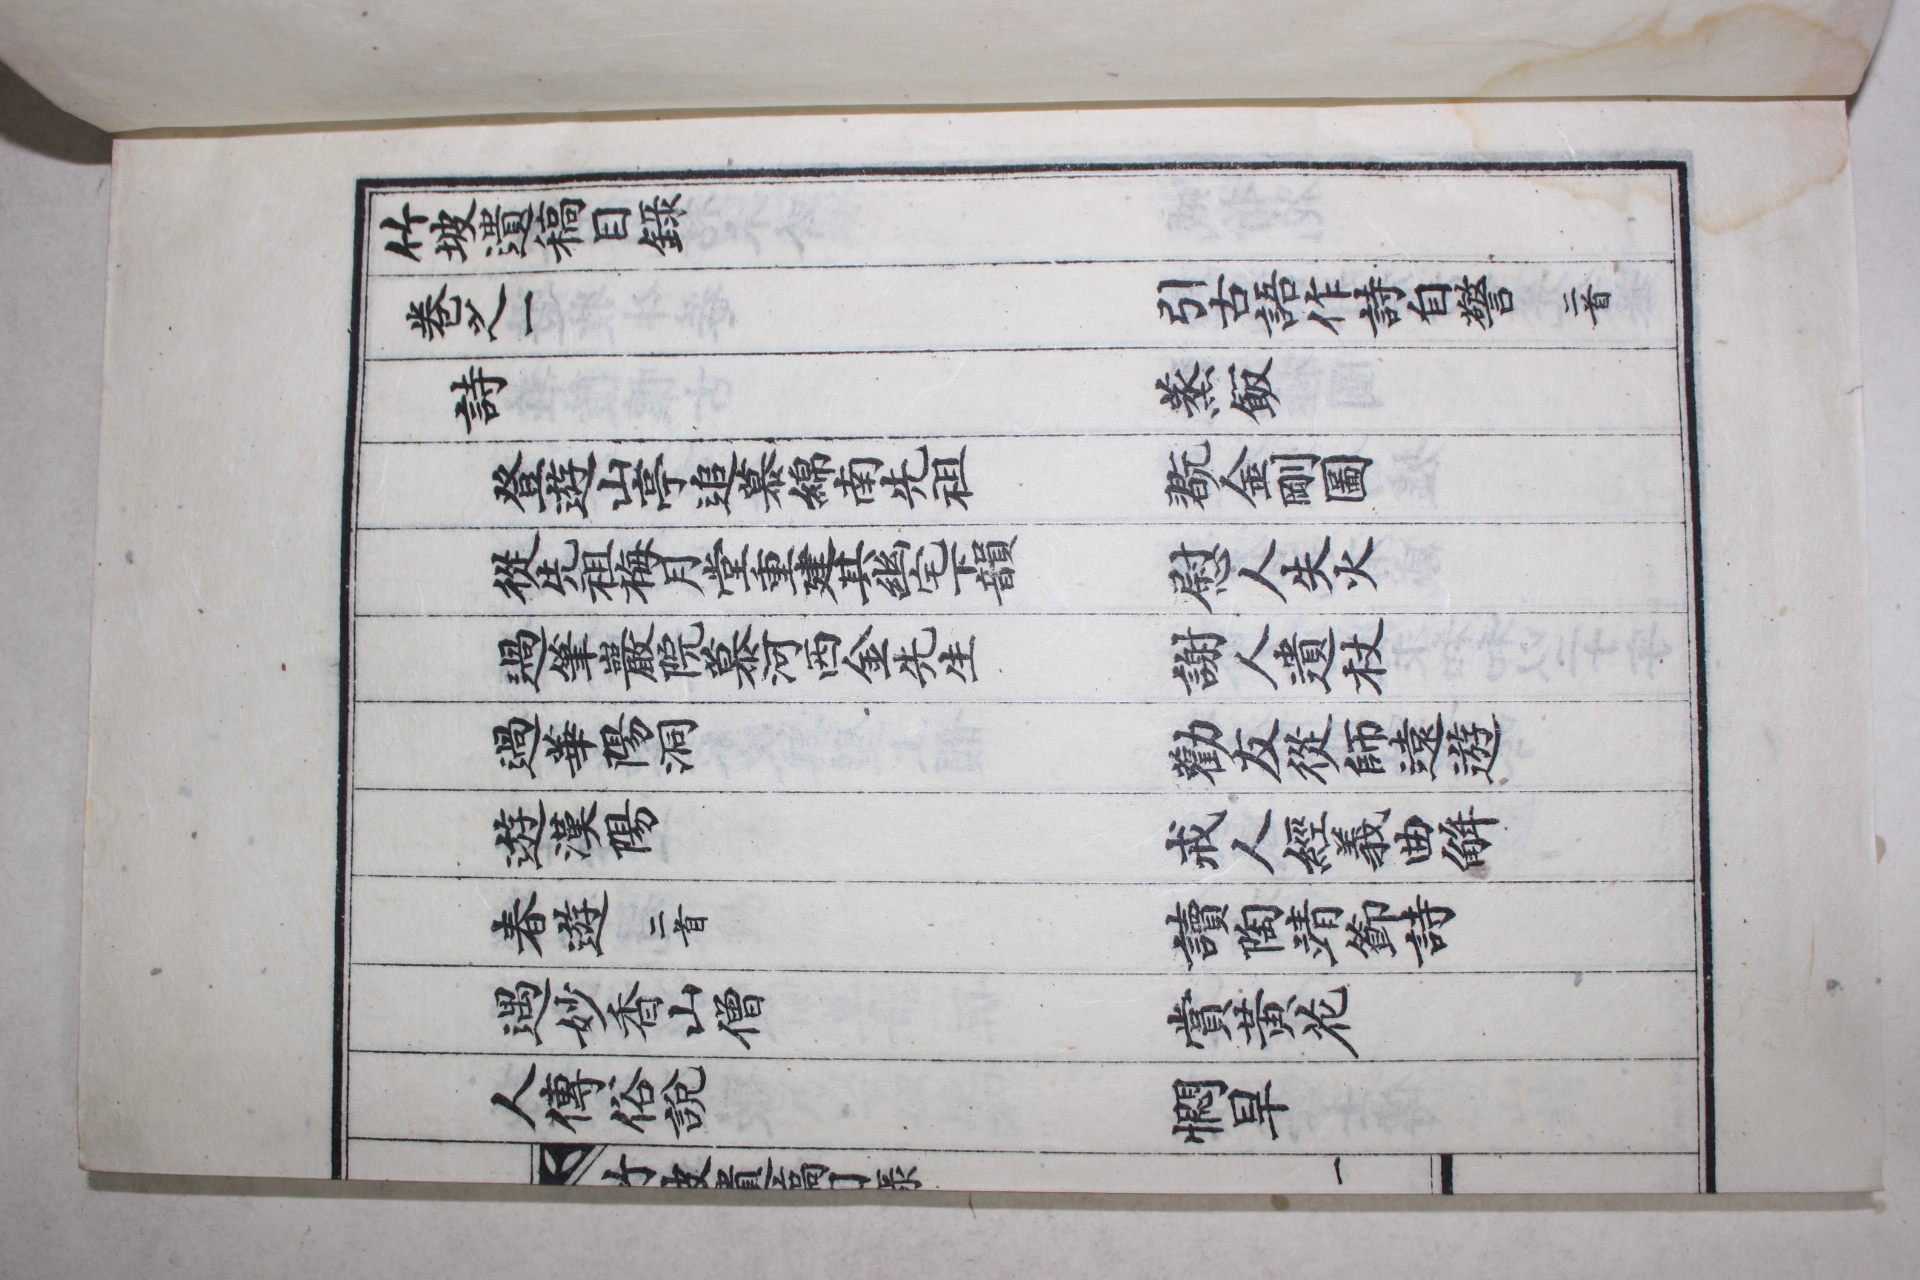 竹坡遺稿目錄
卷之一
引古語作詩自警 二首
詩
蒸飯
登遊山亭追慕綿南先祖
翫金剛圖
從先祖梅月堂重建其幽宅下韻
慰人失火
過筆巖院慕河西金先生
謝人遺杖
過華陽洞
勸友從師遠遊
遊漢陽
戒人經義曲解
春遊 二首
讀陶靖節詩
遇妙香山僧
賞黃花
人傳俗說
憫旱
竹坡遺稿目錄
一